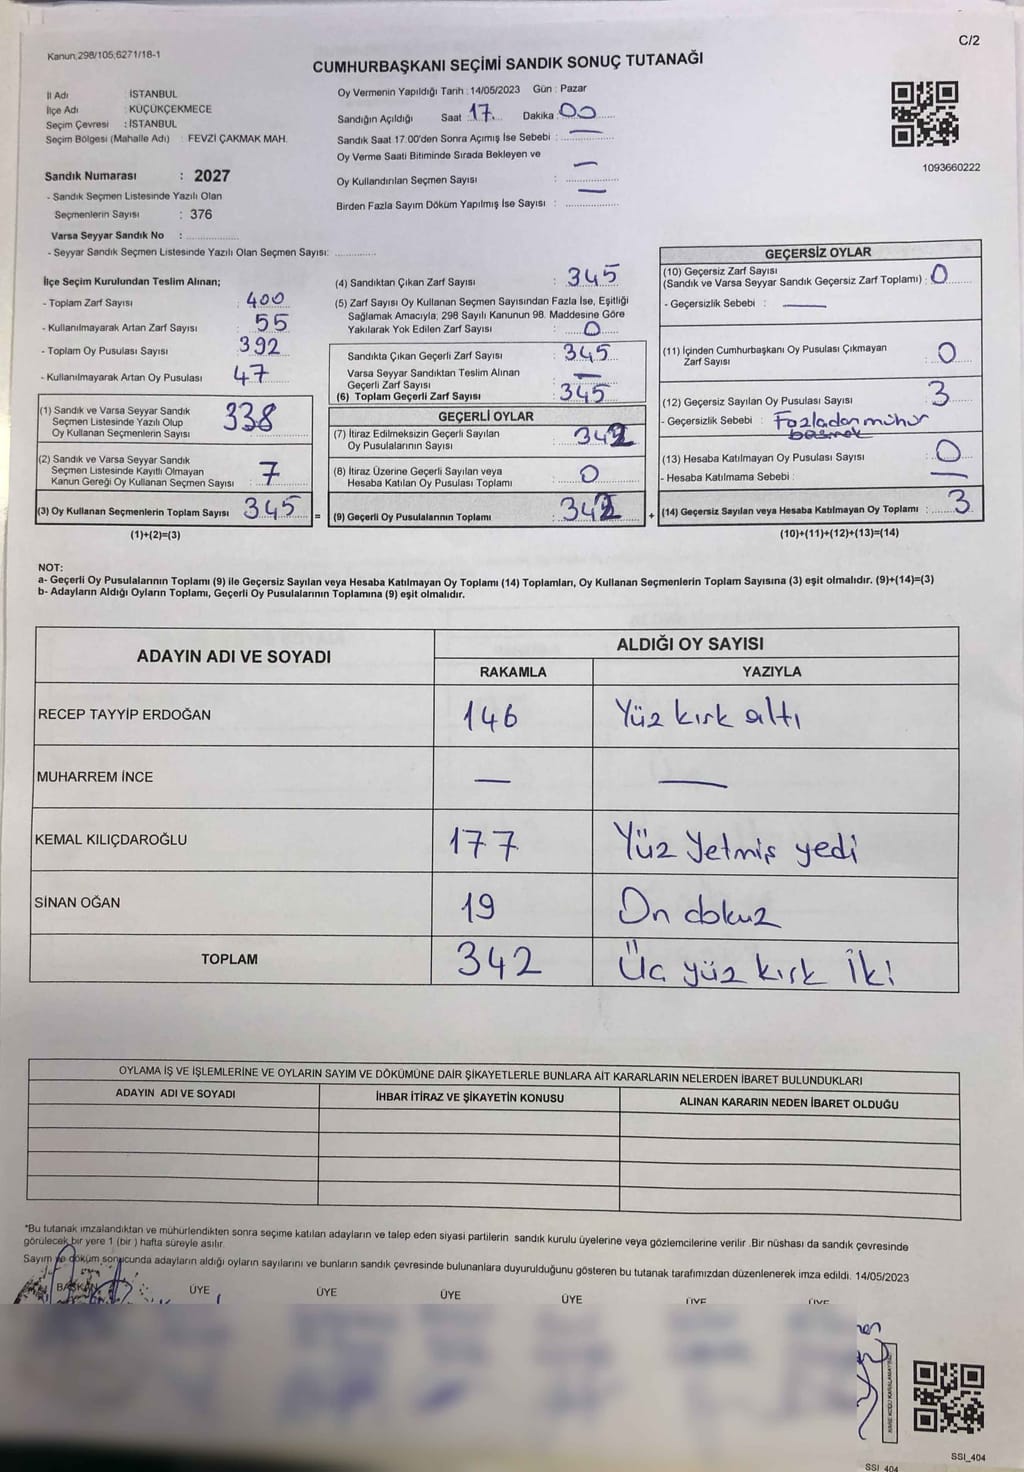 Kanun.298/105;6271/18-1
C/2
CUMHURBAŞKANI SEÇİMİ SANDIK SONUÇ TUTANAĞI
İl Adı : İSTANBUL
İlçe Adı : KÜÇÜKÇEKMECE
Seçim Çevresi : İSTANBUL
Seçim Bölgesi (Mahalle Adı) : FEVZİ ÇAKMAK MAH.
Sandık Numarası : 2027
- Sandık Seçmen Listesinde Yazılı Olan
Seçmenlerin Sayısı : 376
Varsa Seyyar Sandık No :
- Seyyar Sandık Seçmen Listesinde Yazılı Olan Seçmen Sayısı:
Oy Vermenin Yapıldığı Tarih : 14/05/2023 Gün : Pazar
Sandığın Açıldığı Saat : 17 Dakika : 00
Sandık Saat 17.00'den Sonra Açımış İse Sebebi : —
Oy Verme Saati Bitiminde Sırada Bekleyen ve
Oy Kullandırılan Seçmen Sayısı : —
Birden Fazla Sayım Döküm Yapılmış İse Sayısı : —
1093660222
İlçe Seçim Kurulundan Teslim Alınan;
- Toplam Zarf Sayısı : 400
- Kullanılmayarak Artan Zarf Sayısı : 55
- Toplam Oy Pusulası Sayısı : 392
- Kullanılmayarak Artan Oy Pusulası : 47
(1) Sandık ve Varsa Seyyar Sandık
Seçmen Listesinde Yazılı Olup
Oy Kullanan Seçmenlerin Sayısı : 338
(2) Sandık ve Varsa Seyyar Sandık
Seçmen Listesinde Kayıtlı Olmayan
Kanun Gereği Oy Kullanan Seçmen Sayısı : 7
(3) Oy Kullanan Seçmenlerin Toplam Sayısı : 345 =
(1)+(2)=(3)
(4) Sandıktan Çıkan Zarf Sayısı : 345
(5) Zarf Sayısı Oy Kullanan Seçmen Sayısından Fazla İse, Eşitliği
Sağlamak Amacıyla, 298 Sayılı Kanunun 98. Maddesine Göre
Yakılarak Yok Edilen Zarf Sayısı : 0
Sandıkta Çıkan Geçerli Zarf Sayısı : 345
Varsa Seyyar Sandıktan Teslim Alınan
Geçerli Zarf Sayısı : —
(6) Toplam Geçerli Zarf Sayısı : 345
GEÇERLİ OYLAR
(7) İtiraz Edilmeksizin Geçerli Sayılan
Oy Pusulalarının Sayısı : 342
(8) İtiraz Üzerine Geçerli Sayılan veya
Hesaba Katılan Oy Pusulası Toplamı : 0
(9) Geçerli Oy Pusulalarının Toplamı : 342 +
GEÇERSİZ OYLAR
(10) Geçersiz Zarf Sayısı
(Sandık ve Varsa Seyyar Sandık Geçersiz Zarf Toplamı) : 0
- Geçersizlik Sebebi : —
(11) İçinden Cumhurbaşkanı Oy Pusulası Çıkmayan
Zarf Sayısı : 0
(12) Geçersiz Sayılan Oy Pusulası Sayısı : 3
- Geçersizlik Sebebi : Fazladan mühür
basmak
(13) Hesaba Katılmayan Oy Pusulası Sayısı : 0
- Hesaba Katılmama Sebebi : —
(14) Geçersiz Sayılan veya Hesaba Katılmayan Oy Toplamı : 3
(10)+(11)+(12)+(13)=(14)
NOT:
a- Geçerli Oy Pusulalarının Toplamı (9) ile Geçersiz Sayılan veya Hesaba Katılmayan Oy Toplamı (14) Toplamları, Oy Kullanan Seçmenlerin Toplam Sayısına (3) eşit olmalıdır. (9)+(14)=(3)
b- Adayların Aldığı Oyların Toplamı, Geçerli Oy Pusulalarının Toplamına (9) eşit olmalıdır.
ADAYIN ADI VE SOYADI
ALDIĞI OY SAYISI
RAKAMLA YAZIYLA
RECEP TAYYİP ERDOĞAN 146 Yüz kırk altı
MUHARREM İNCE — —
KEMAL KILIÇDAROĞLU 177 Yüz Yetmiş yedi
SİNAN OĞAN 19 On dokuz
TOPLAM 342 Üç yüz kırk İki
OYLAMA İŞ VE İŞLEMLERİNE VE OYLARIN SAYIM VE DÖKÜMÜNE DAİR ŞİKAYETLERLE BUNLARA AİT KARARLARIN NELERDEN İBARET BULUNDUKLARI
ADAYIN ADI VE SOYADI İHBAR İTİRAZ VE ŞİKAYETİN KONUSU ALINAN KARARIN NEDEN İBARET OLDUĞU
*Bu tutanak imzalandıktan ve mühürlendikten sonra seçime katılan adayların ve talep eden siyasi partilerin sandık kurulu üyelerine veya gözlemcilerine verilir .Bir nüshası da sandık çevresinde
görülecek bir yere 1 (bir ) hafta süreyle asılır.
Sayım ve döküm sonucunda adayların aldığı oyların sayılarını ve bunların sandık çevresinde bulunanlara duyurulduğunu gösteren bu tutanak tarafımızdan düzenlenerek imza edildi. 14/05/2023
BAŞKAN ÜYE ÜYE ÜYE ÜYE ÜYE ÜYE
KARE KODU KARALAMAYINIZ
SSI_404
SSI_404